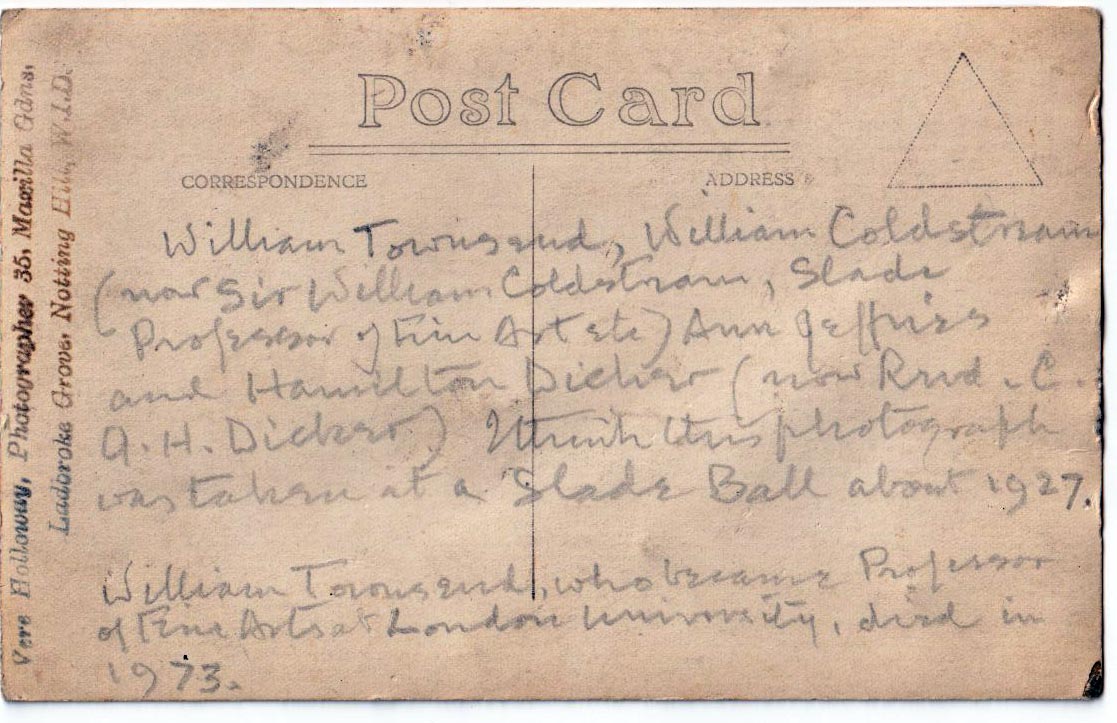 Post Card
CORRESPONDENCE
ADDRESS
William Townsend, William Coldstream
(now Sir William Coldstream, Slade
Professor of Fine Art etc) Ann Jeffries
and Hamilton Dicker (now Rvd. C.
G. H. Dicker) I think this photograph
was taken at a Slade Ball about 1927.
William Townsend, who became Professor
of Fine Arts at London University, died in
1973.
Vere Holloway, Photographer 35, Maxilla Gdns,
Ladbroke Grove, Notting Hill, W.I.D.